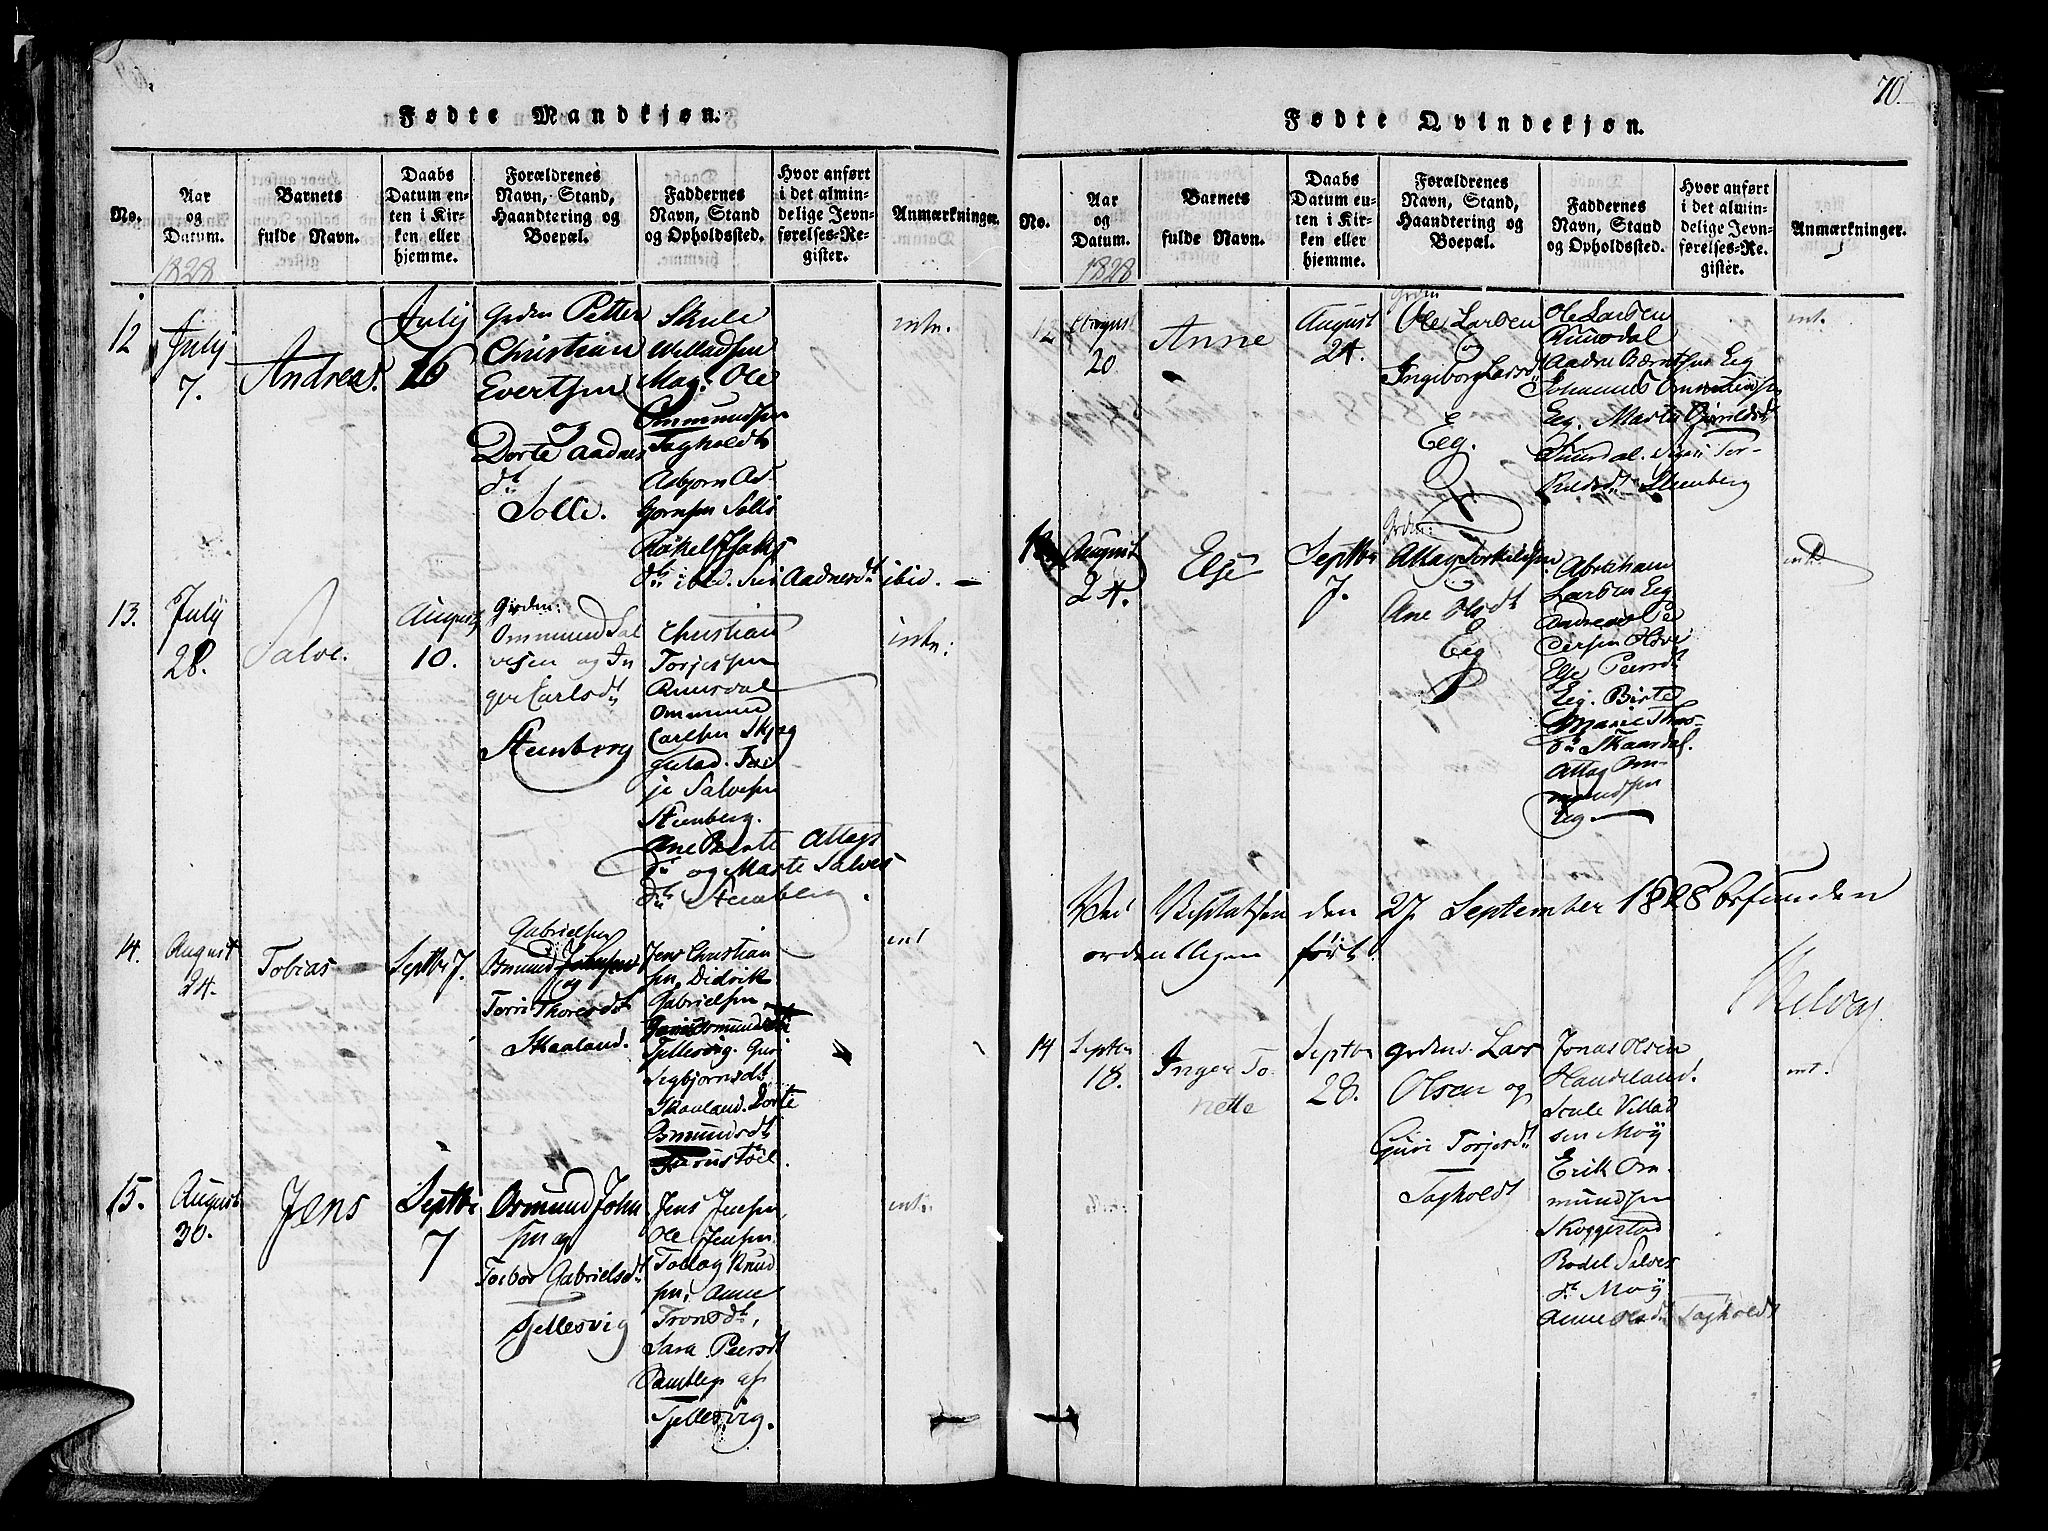 Fødte Mandkjøn.
No.
Aar
og
Datum.
1828
Barnets
fulde Navn.
Daabs
Datum en-
ten i Kir-
ken eller
hjemme.
Forældrenes
Navn, Stand,
Haandtering og
Boepæl.
Faddernes
Navn, Stand
og Opholdssted.
Hvor anført
i det almin-
delige Jevn-
førelses-Re-
gister.
Anmærkninger.
12
July
7.
Andreas.
July
16
Petter
Christian
Evertsen
og
Dorte Aadnes
dt
Solli.
Skule
Willadsen
Mag. Ole
Ommundsen
Tagholdt
Asbjørn As-
bjørnsen Solli
Røkel Isaks
dt ibid. Siri Aadnesdt ibid. —
intr.
13.
July
28.
Salve.
August
10.
Grden:
Ommund Sal
vesen og In
Carlsdt
Steenberg
Christian
Torjessen
Ruusdal
Ommund
Carlsen Skjeg
gestad. Tor
je Salvesen
Steenberg.
Ane Bente Attags
dt og Marte Salves
dt Steenberg.
intr:
14.
August
24.
Tobias
Septbr 7.
Gabrielsen
Osmund Johnsen
og
Torri Thoresdt
Skaaland.
Jens Christian
sen, Didrik
Gabrielsen
Tjellesvig. Guri
Sigbjørnsdt
Skaaland. Dorte
Osmundsdt
int
15.
August
30.
Jens
Septbr
7
Osmund John
sen og
Torbor Gabrielsdt
Tjellesvig
Jens Jensen,
Ole Jensen
Tollag Knud
sen, Anne
Tronsdt,
Sara Peersdt
Samtlige af
Tjellesvig.
intr.
70.
Fødte Qvindekjøn.
No.
Aar
og
Datum.
1828
Barnets
fulde Navn.
Daabs
Datum en-
ten i Kir-
ken eller
hjemme.
Forældrenes
Navn, Stand,
Haandtering og
Boepæl.
Faddernes
Navn, Stand
og Opholdssted.
Hvor anført
i det almin-
delige Jevn-
førelses-Re-
gister.
Anmærkninger.
12
August
20
Anne
August
24.
Grden
Ole Larsen
og
Ingeborg Larsdt
Eeg.
Ole Larsen
Ruusdal
Aadne Berntsen Eeg
Johannes Ommundsen
Eeg. Marte
Ruusdal. Siri Tor-
kildsdt Steenberg
int.
August
24.
Else
Septbr
7.
Grden:
Attag Torkildsen
Ane Olsdt
Eeg
Abraham
Larsen Eeg
Andreas Pe
dersen Hove
Else Peersdt
Eeg. Birte
Marie Thors-
dt Skaardal.
Attag Om-
mundsen
Eeg.
int
Ved Visitatsen den 27 September 1828 befunden
ordentligen ført.
14
Septbr
18.
Inger To-
nette
Septbr
28.
Grdens. Lars
Olsen og
Guri Torjesdt
Tagholdt
Jonas Olsen
Handeland.
Scule Villad
sen Moÿ
Erik Om-
mundsen
Skoggestad
Bodel Salves
dt Moÿ
Anne Olsdt Tagholdt
int.